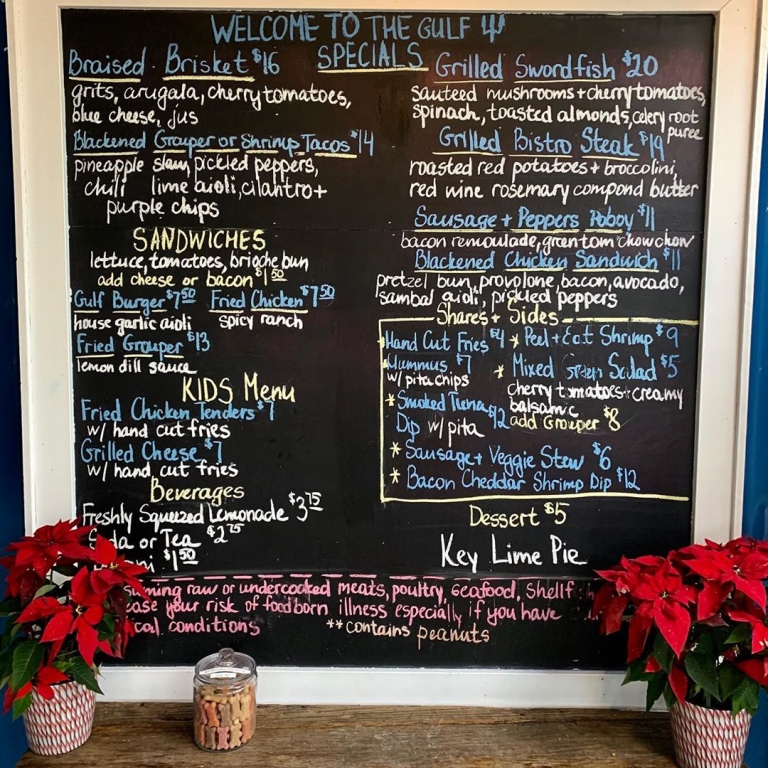 WELCOME TO THE GULF
SPECIALS
Braised Brisket $16
grits, arugala, cherry tomatoes,
blue cheese, jus
Blackened Grouper or Shrimp Tacos $14
pineapple slaw, pickled peppers,
chili lime aioli, cilantro +
purple chips
SANDWICHES
lettuce, tomatoes, brioche bun
add cheese or bacon $1.50
Gulf Burger $7.50 Fried Chicken $7.50
house garlic aioli spicy ranch
Fried Grouper $13
lemon dill sauce
KIDS Menu
Fried Chicken Tenders $7
w/ hand cut fries
Grilled Cheese $7
w/ hand cut fries
Beverages
Freshly Squeezed Lemonade $3.75
or Tea $2.75
$1.50
Grilled Swordfish $20
sauteed mushrooms + cherry tomatoes,
spinach, toasted almonds, celery root
puree
Grilled Bistro Steak $19
roasted red potatoes + broccolini,
red wine rosemary compond butter
Sausage + Peppers Poboy $11
bacon remoulade, green tom chow chow
Blackened Chicken Sandwich $11
pretzel bun, provolone, bacon, avocado,
sambal aioli, pickled peppers
Shares + Sides
Hand Cut Fries $4 * Peel + Eat Shrimp $9
Hummus $7
w/ pita chips
* Mixed Green Salad $5
cherry tomatoes + creamy
balsamic
add Grouper $8
* Smoked Tuna
Dip w/ pita $12
* Sausage + Veggie Stew $6
* Bacon Cheddar Shrimp Dip $12
Dessert $5
Key Lime Pie
raw or undercooked meats, poultry, seafood,
your risk of foodborn illness especially if you have
conditions **contains peanuts